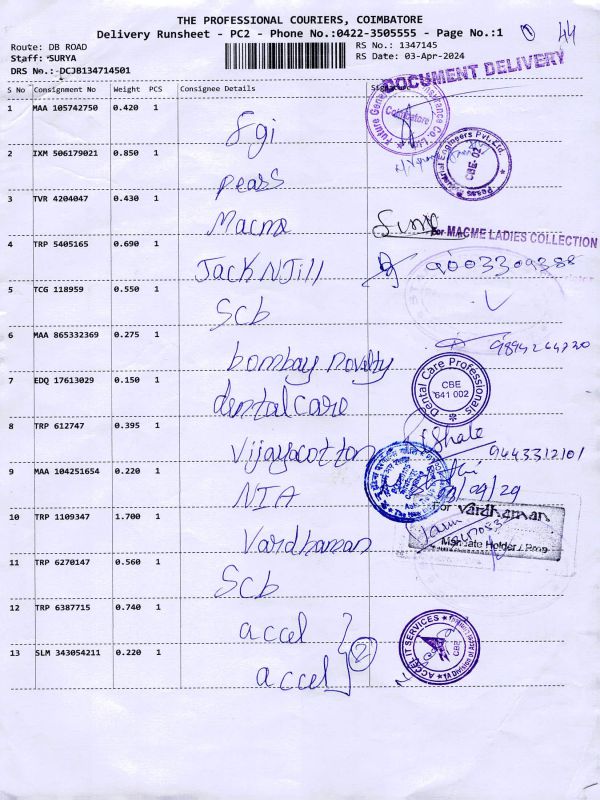 THE PROFESSIONAL COURIERS, COIMBATORE
Delivery Runsheet - PC2 - Phone No.:0422-3505555 - Page No.:1
44
Route: DB ROAD
RS No.: 1347145
Staff: SURYA
RS Date: 03-Apr-2024
DRS No.:-DCJB134714501
DOCUMENT DELIVERY
S No Consignment No Weight PCS Consignee Details
1 MAA 105742750 0.420 1 Fgi
Coimbatore
2 IXM 506179021 0.850 1 pears
CBE-02
3 TVR 4204047 0.430 1 Macme
For MACME LADIES COLLECTION
4 TRP 5405165 0.690 1 Jack N Jill 9003309388
5 TCG 118959 0.550 1 Scb
6 MAA 865332369 0.275 1 bombay novalty 9894264730
7 EDQ 17613029 0.150 1 dentalcare
Dental Care Professionals
CBE
641 002
8 TRP 612747 0.395 1 Vijayacotton 9443312101
9 MAA 104251654 0.220 1 NIA
10 TRP 1109347 1.700 1 Vardhaman
For Vardhaman
Mandate Holder / Prop
11 TRP 6270147 0.560 1 Scb
12 TRP 6387715 0.740 1 accel
2
13 SLM 343054211 0.220 1 accel
ACCEL IT SERVICES
CBE